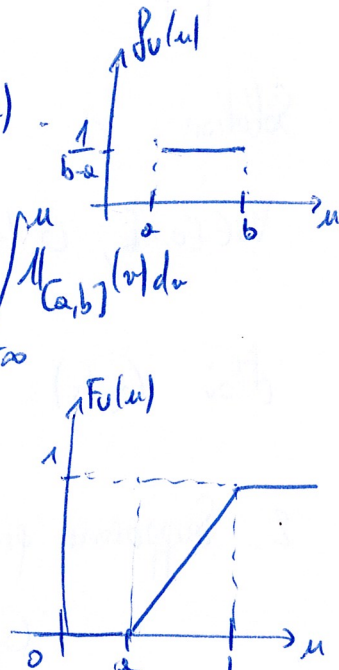 f_U(u)
) -
1/(b-a)
a b u
∫^u 𝟙_[a,b](v) dv
-∞
F_U(u)
1
0 a b u